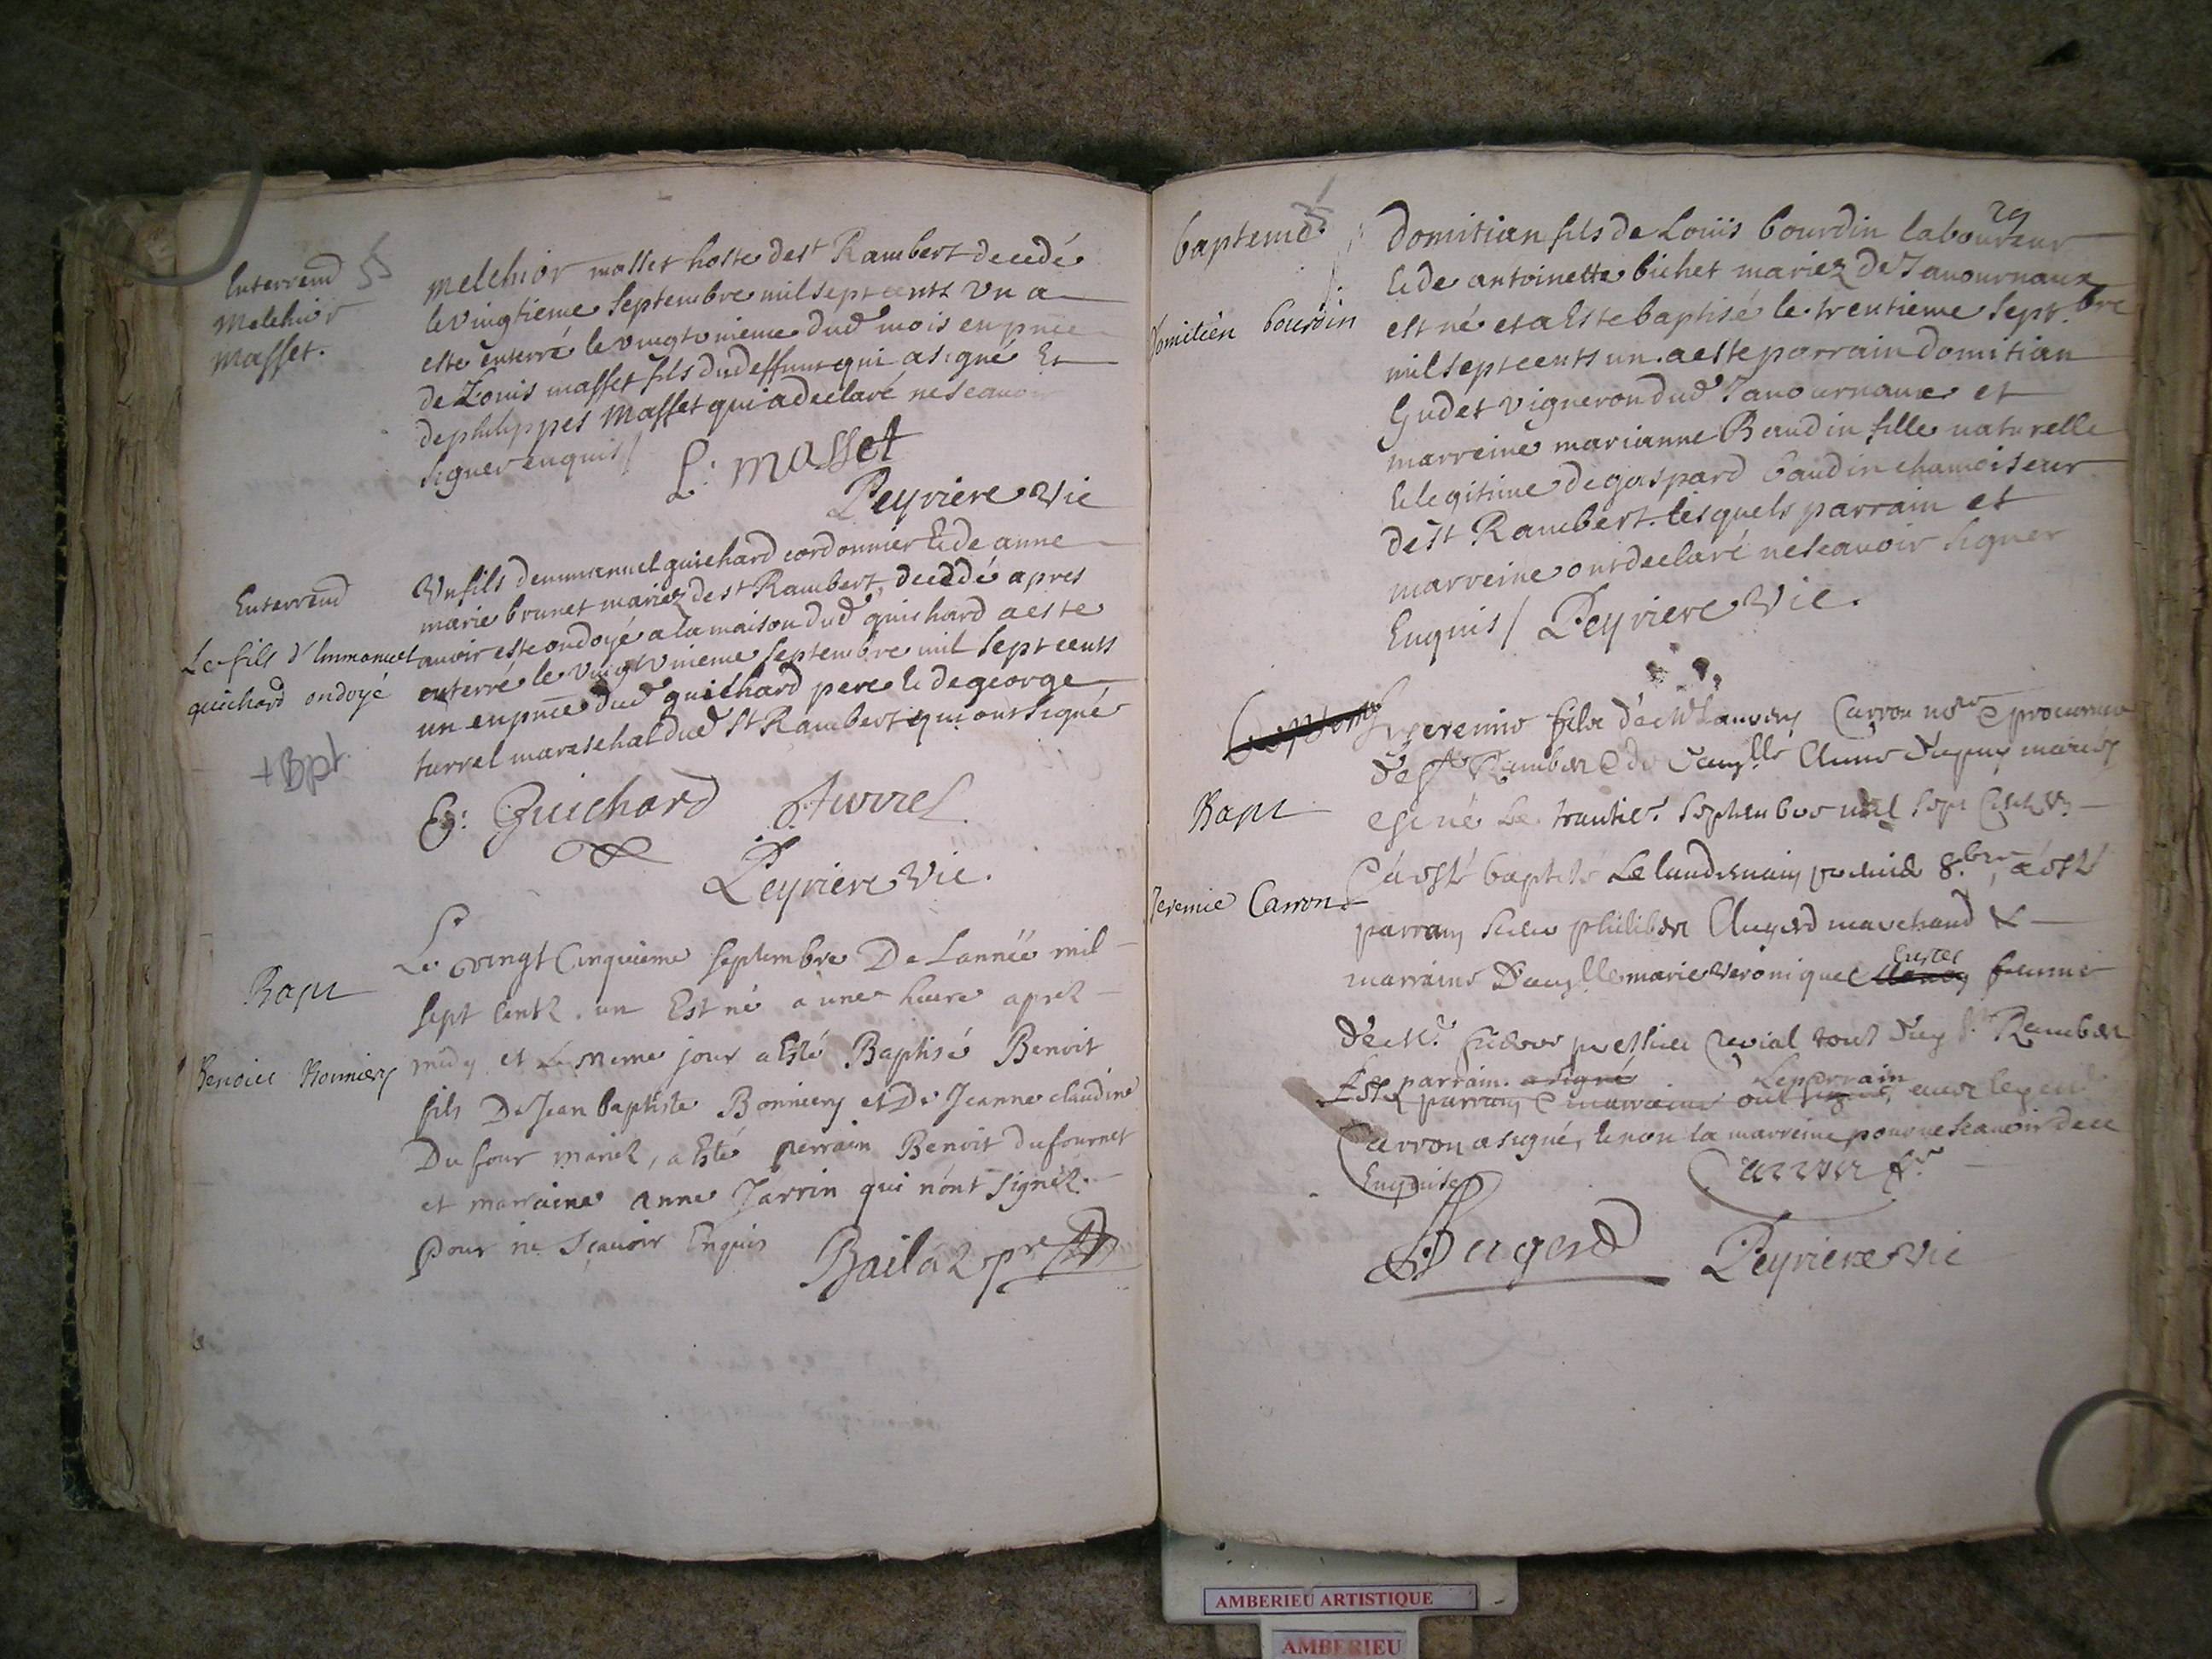 Enterremt
Melchior
Masset.
melchior masset hoste de st Rambert decedé
le vingtieme septembre mil sept cents un a
este enterré le vingtunieme dud mois en pnce
de Louis masset fils dud deffunt qui a signé Et
de philippes Masset qui a declaré ne scauoir
signer enquis /
L: masset
Peyriere vic
Enterremt
Le fils d'Immanuel
guichard ondoyé
+Bpt
Un fils demmanuel guichard cordonnier & de anne
marie brunet mariez de st Rambert, decedé apres
auoir este ondoyé a la maison dud guichard a este
enterré le vingtunieme septembre mil sept cents
un en pnce dud guichard pere & de george
turrel mareschal dud st Rambert qui ont signé
E: Guichard Turrel
Peyriere vic.
Bapt
Benoict Bonniery
Le vingt Cinquieme septembre De Lannée mil
sept Centz. un Est né a une heure aprez
midy et Le meme jour a Esté Baptisé Benoit
fils De Jean baptiste Bonniery et De Jeanne claudine
Du four mariez, a Esté perrain Benoit dufournet
et marraine anne Jarrin qui n'ont signéz.
Pour ne Sçauoir Enquis
Bailaz pre
29
bapteme
Domitien bourdin
Domitian fils de Loüis bourdin laboureur
& de antoinette bichet mariez de Janournaux
est né et a Este baptisé le trentieme sept.bre
mil sept cents un. a este parrain domitian
Gudet vigneron dud Janournaux et
marreine marianne Baudin fille naturelle
& legitime de gaspard baudin chamoiseur
de st Rambert. lesquels parrain et
marreine ont declaré ne scauoir signer
Enquis / Peyriere vic.
Bapt
Jeremie Carron
Jeremie fils de Carron nore & procureur
de st Rambert & de damlle Anne mariés
est né le trantie. septembre mil sept
& a osté baptisé Le landemain 8.bre, a osté
parrain philibert Augerd marchand &
marraine Damlle marie veronique femme
de tous Rambert
parrain. a signé Le parrain
parrain & marraine ont signé, auec
Carron a signé, & non la marreine pour ne scauoir de ce
Enquise
Carron
Augerd
Peyriere vic
AMBERIEU ARTISTIQUE
AMBERIEU